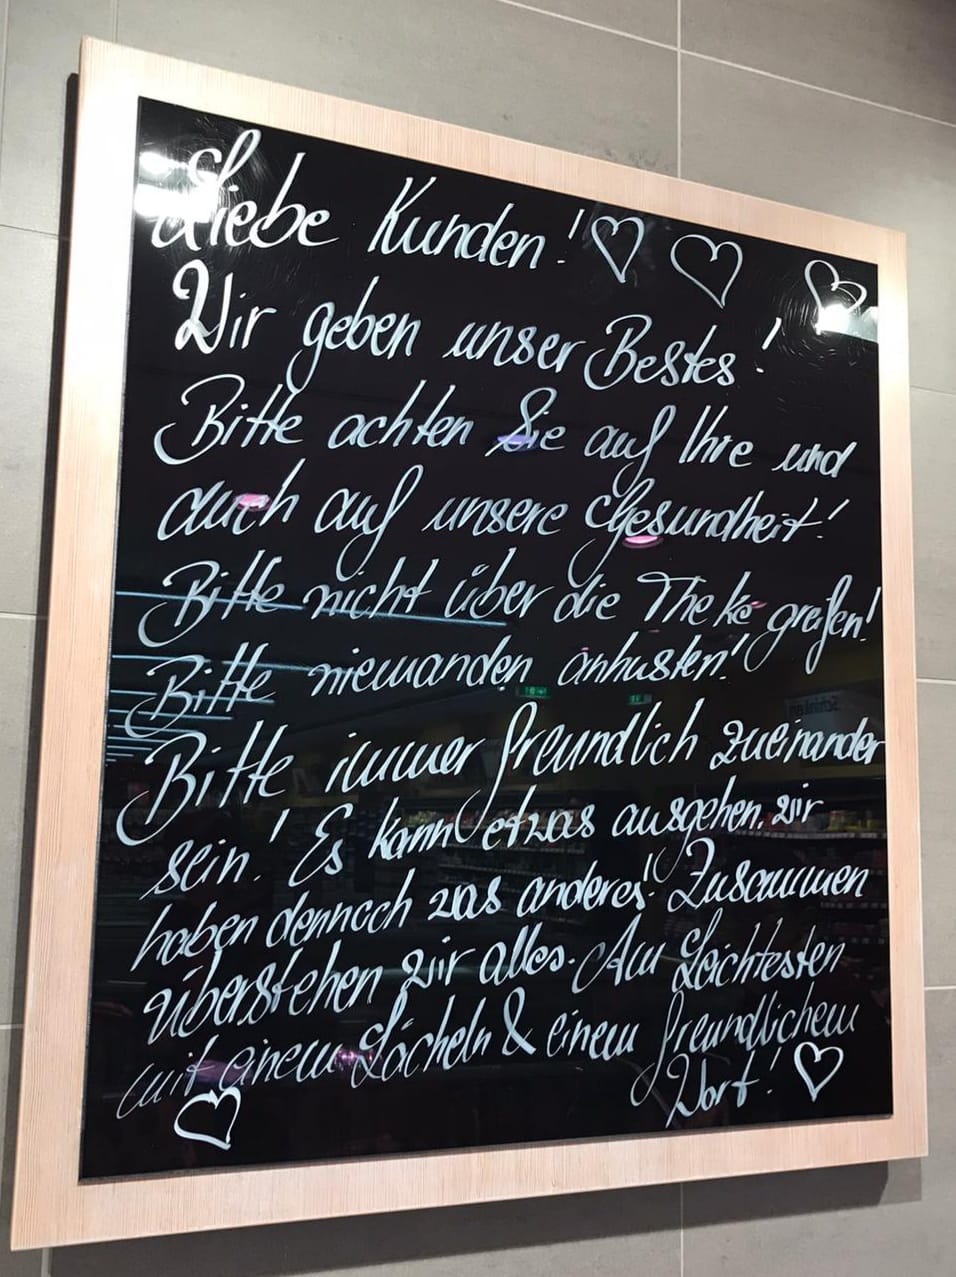 Liebe Kunden!
Wir geben unser Bestes!
Bitte achten Sie auf Ihre und
auch auf unsere Gesundheit!
Bitte nicht über die Theke greifen!
Bitte niemanden anhusten!
Bitte immer freundlich zueinander
sein! Es kann etwas ausgehen, wir
haben dennoch was anderes! Zusammen
überstehen wir alles. Am Leichtesten
mit einem Lächeln & einem freundlichem
Wort!